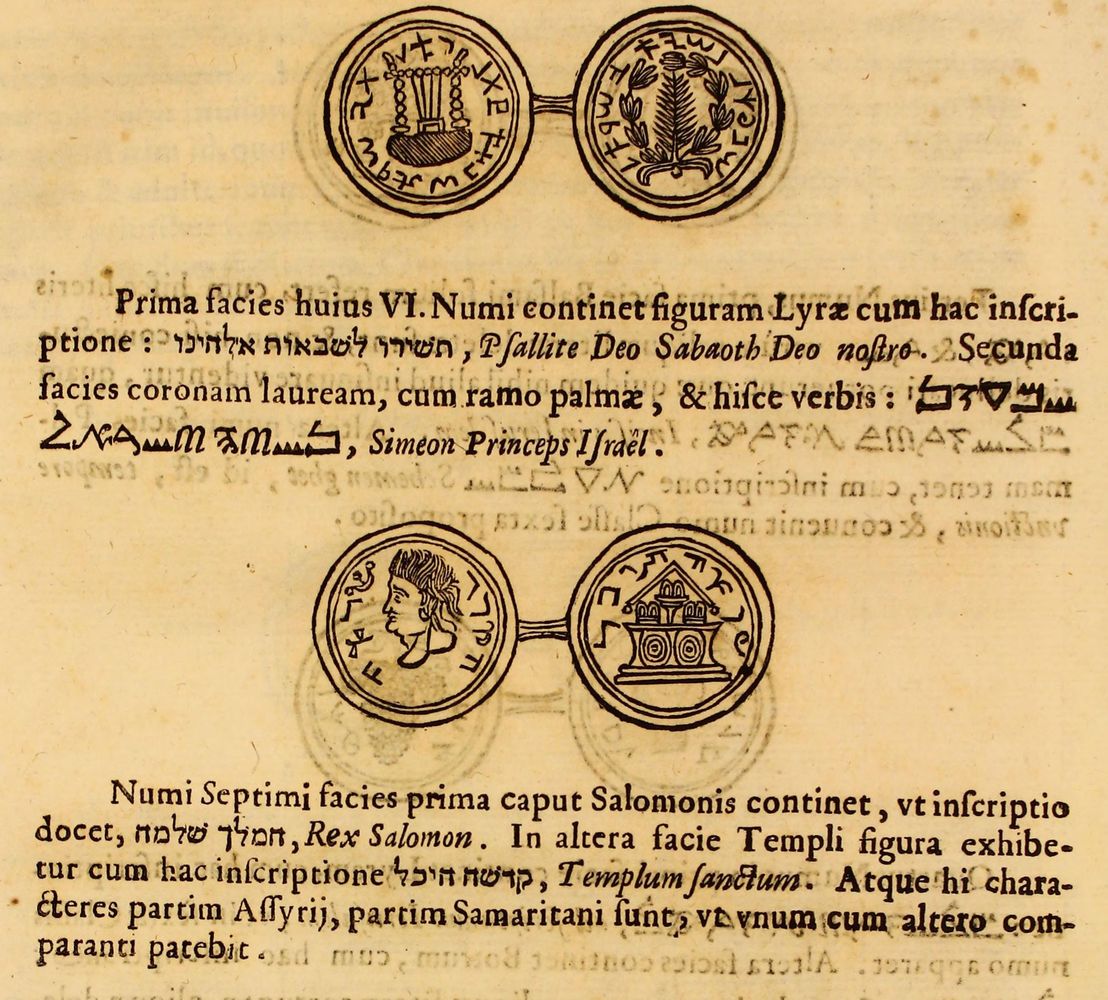 Prima facies huius VI. Numi continet figuram Lyræ cum hac inſcri-
ptione : תשירו לשבאות אלהינו, Pſallite Deo Sabaoth Deo noſtro. Secunda
facies coronam lauream, cum ramo palmæ, & hiſce verbis :
Simeon Princeps Iſraël.
Numi Septimi facies prima caput Salomonis continet, vt inſcriptio
docet, המלך שלמה, Rex Salomon. In altera facie Templi figura exhibe-
tur cum hac inſcriptione קדשה היכל, Templum ſanctum. Atque hi chara-
cteres partim Aſſyrij, partim Samaritani ſunt, vt vnum cum altero com-
paranti patebit.